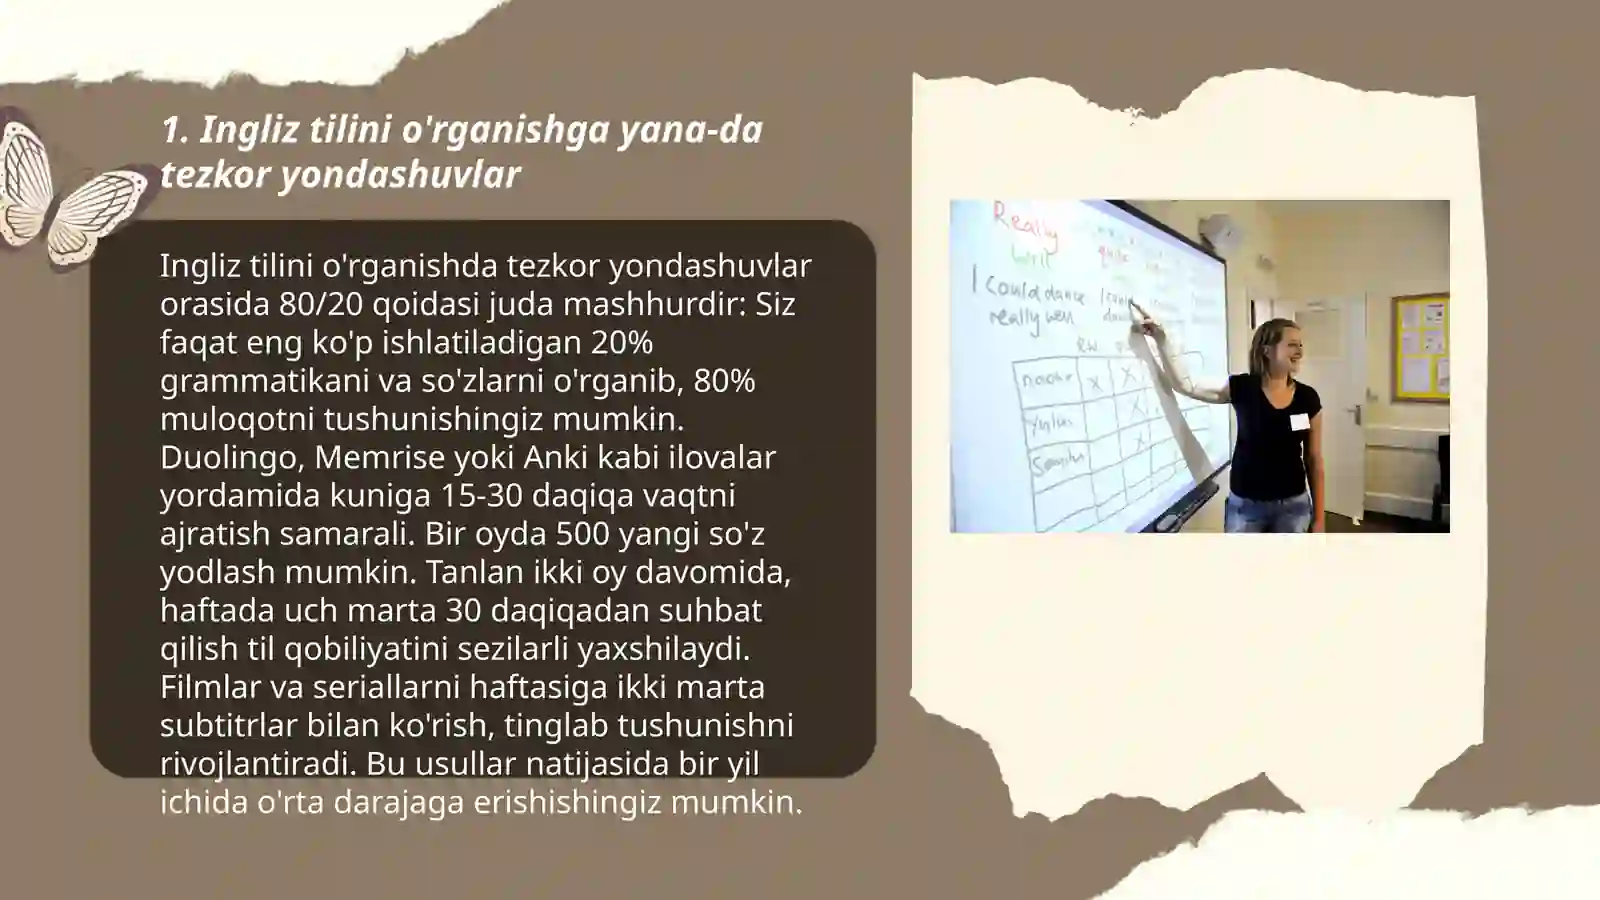 1. Ingliz tilini o'rganishga yana-da
tezkor yondashuvlar
Ingliz tilini o'rganishda tezkor yondashuvlar
orasida 80/20 qoidasi juda mashhurdir: Siz
faqat eng ko'p ishlatiladigan 20%
grammatikani va so'zlarni o'rganib, 80%
muloqotni tushunishingiz mumkin.
Duolingo, Memrise yoki Anki kabi ilovalar
yordamida kuniga 15-30 daqiqa vaqtni
ajratish samarali. Bir oyda 500 yangi so'z
yodlash mumkin. Tanlan ikki oy davomida,
haftada uch marta 30 daqiqadan suhbat
qilish til qobiliyatini sezilarli yaxshilaydi.
Filmlar va seriallarni haftasiga ikki marta
subtitrlar bilan ko'rish, tinglab tushunishni
rivojlantiradi. Bu usullar natijasida bir yil
ichida o'rta darajaga erishishingiz mumkin.
Really
quite
I could dance
really well
x x
x
x